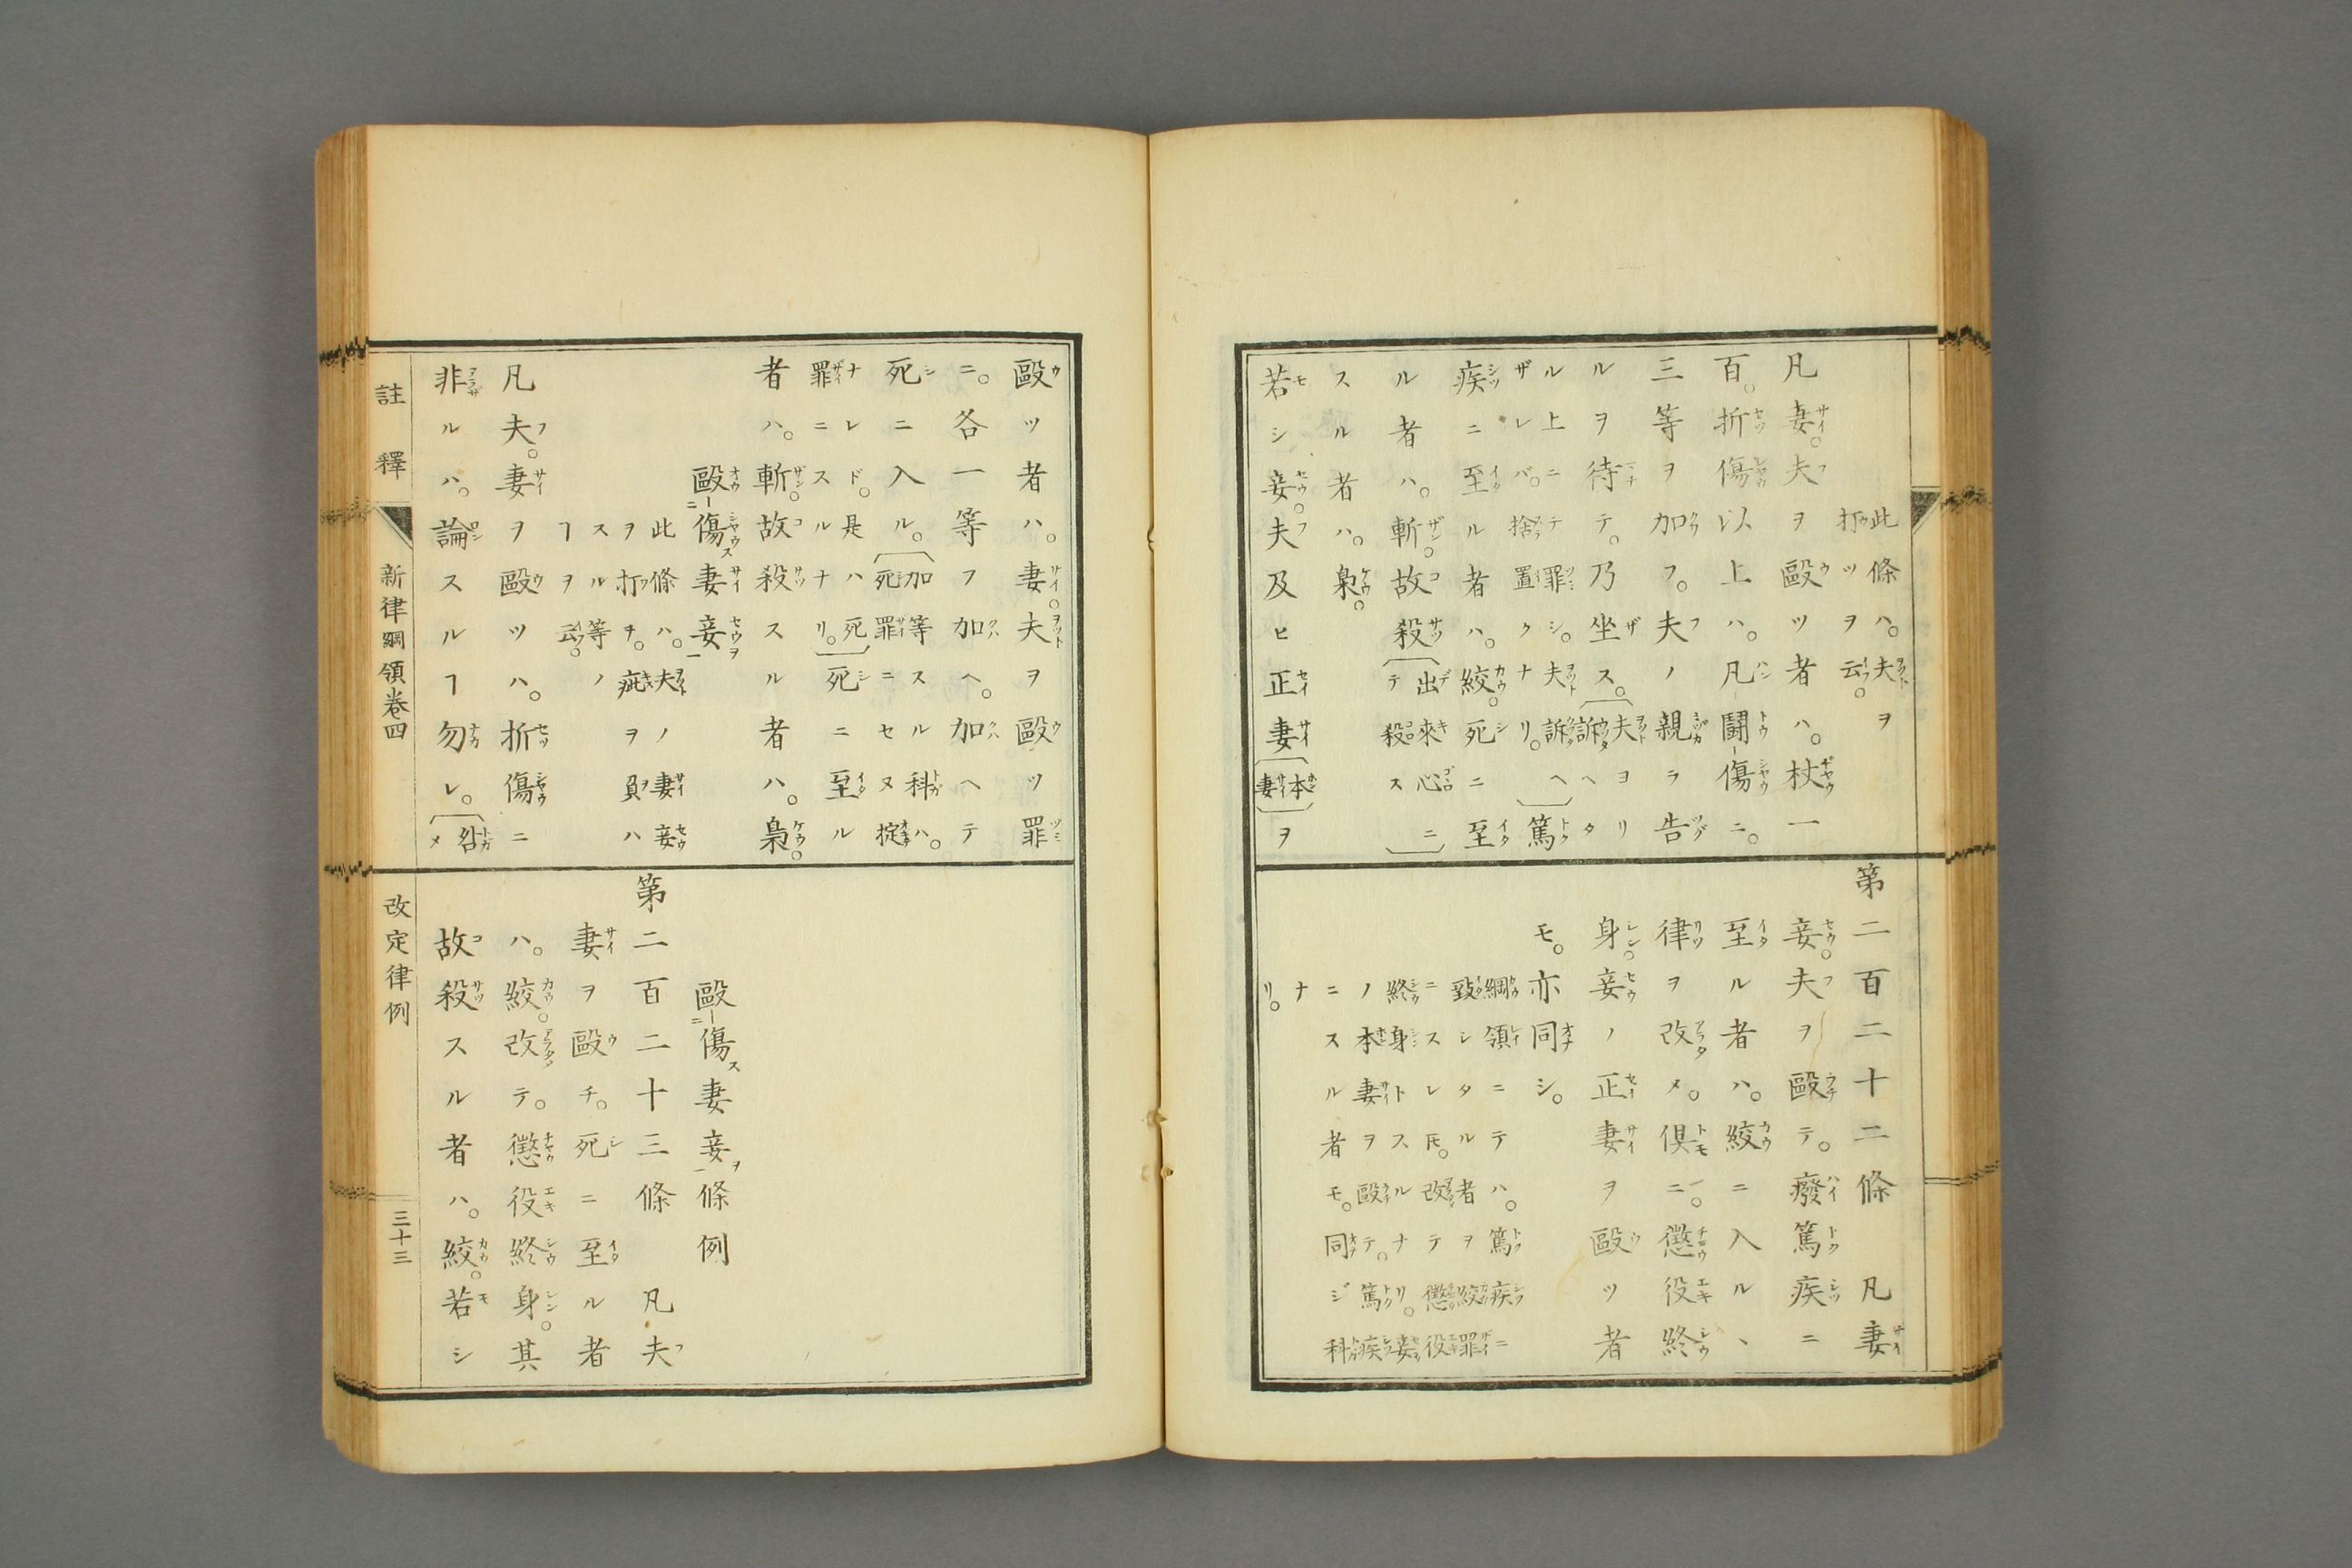 此條ハ。夫ヲ
打ツヲ云。
凡妻。夫ヲ毆ツ者ハ。杖一
百。折傷以上ハ。凡鬪傷ニ。
三等ヲ加フ。夫ノ親ラ告
ルヲ待テ。乃坐ス。〔夫ヨリ訴ヘタ
ル上ニテ罪シ。夫訴ヘザレバ。捨置クナリ。〕篤
疾ニ至ル者ハ。絞。死ニ至
ル者ハ。斬。故殺〔出來心ニテ殺ス〕
スル者ハ。梟。
若シ妾。夫及ヒ正妻〔本妻〕ヲ
第二百二十二條 凡妻
妾。夫ヲ毆テ。癈篤疾ニ
至ル者ハ。絞ニ入ルヽ
律ヲ改メ。倶ニ。懲役終
身。妾ノ正妻ヲ毆ツ者
モ。亦同シ。
綱領ニテハ。篤疾ニ
致シタル者ヲ絞罪
ニスレ𪜈。改テ懲役
終身トスルナリ。妾
ノ本妻ヲ毆テ。篤疾
ニスル者モ。同ジ科
ナリ。
毆ツ者ハ。妻。夫ヲ毆ツ罪
ニ。各一等フ加ヘ。加ヘテ
死ニ入ル。〔加等スル科ハ。死罪ニセヌ掟
ナレド。是ハ死罪ニスルナリ。〕死ニ至ル
者ハ。斬。故殺スル者ハ。梟。
毆傷妻妾
此條ハ。夫ノ妻妾
ヲ打チ。疵ヲ負ハ
スル等ノ
ヿヲ云。
凡夫。妻ヲ毆ツハ。折傷ニ
非ルハ。論スルヿ勿レ。〔咎メ
毆傷妻妾條例
第二百二十三條 凡夫
妻ヲ毆チ。死ニ至ル者
ハ。絞。改テ。懲役終身。其
故殺スル者ハ。絞。若シ
註釋 新律綱領卷四
改定律例 三十三